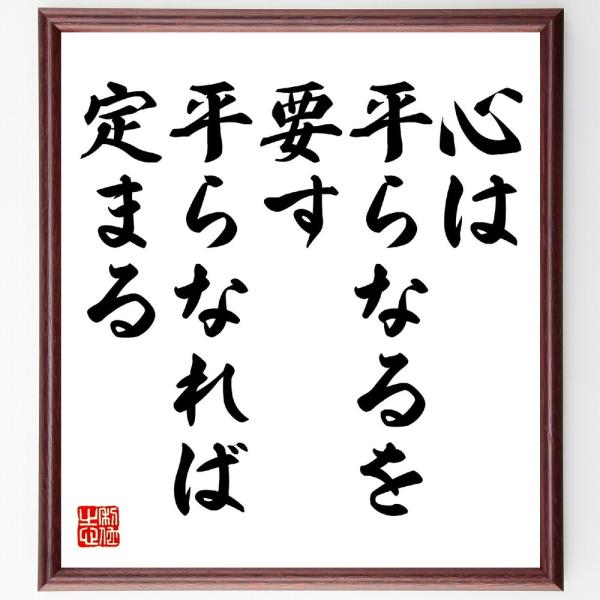 心は
平らなるを
要す
平らなれば
定まる